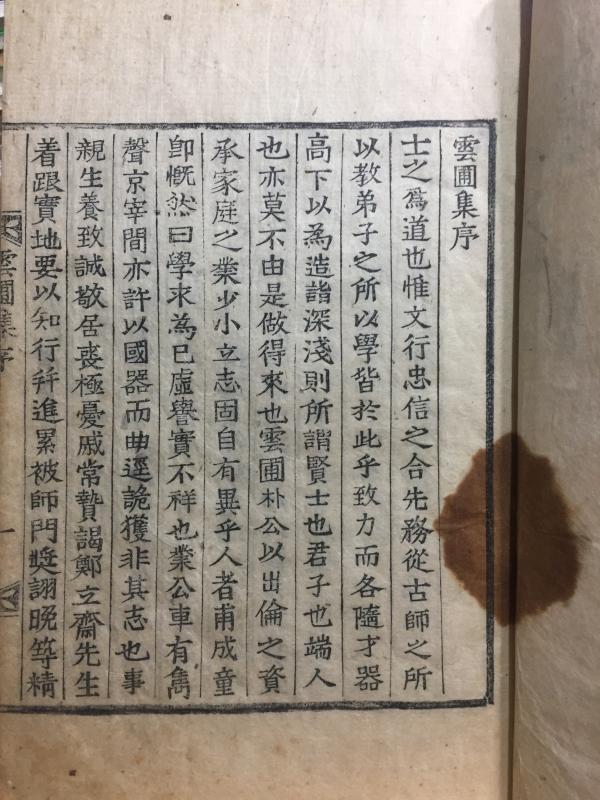 雲圃集序
士之爲道也惟文行忠信之合先務從古師之所
以教弟子之所以學皆於此乎致力而各隨才器
高下以為造詣深淺則所謂賢士也君子也端人
也亦莫不由是做得來也雲圃朴公以出倫之資
承家庭之業少小立志固自有異乎人者甫成童
卽慨然曰學求為已虛譽實不祥也業公車有雋
聲京宰間亦許以國器而曲逕詭獲非其志也事
親生養致誠敬居喪極憂戚常贄謁鄭立齋先生
着跟實地要以知行幷進累被師門奬詡晩等精
雲圃集序
一